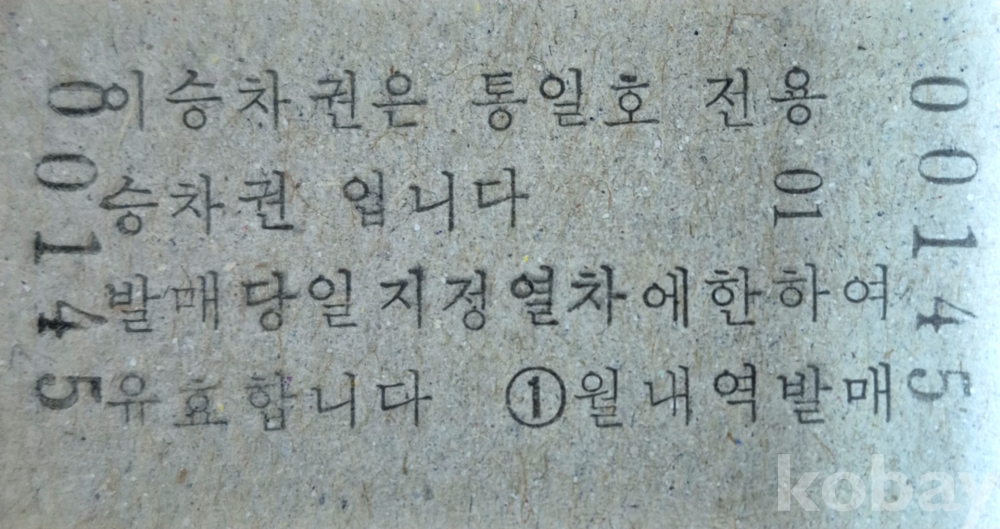 이 승차권은 통일호 전용
승차권 입니다 01
발매당일 지정열차에한하여
유효합니다 ①월내역발매
00145
00145
kobay